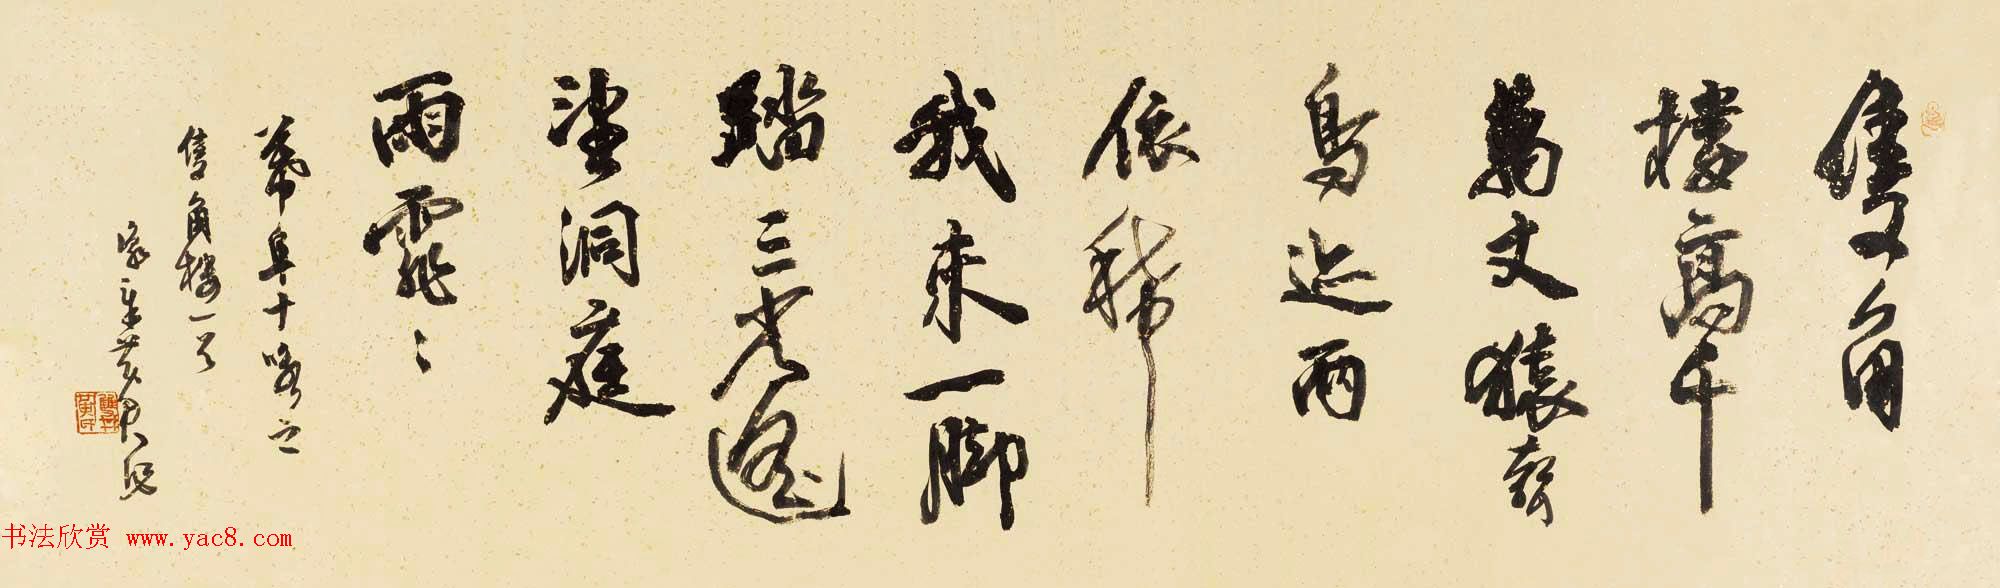 隻角
樓高千
萬丈猿聲
鳥迹兩
依稀
我來一腳
踏三光遥
望洞庭
雨霏〻
阜十景之
隻角樓一首
书法欣赏 www.yac8.com